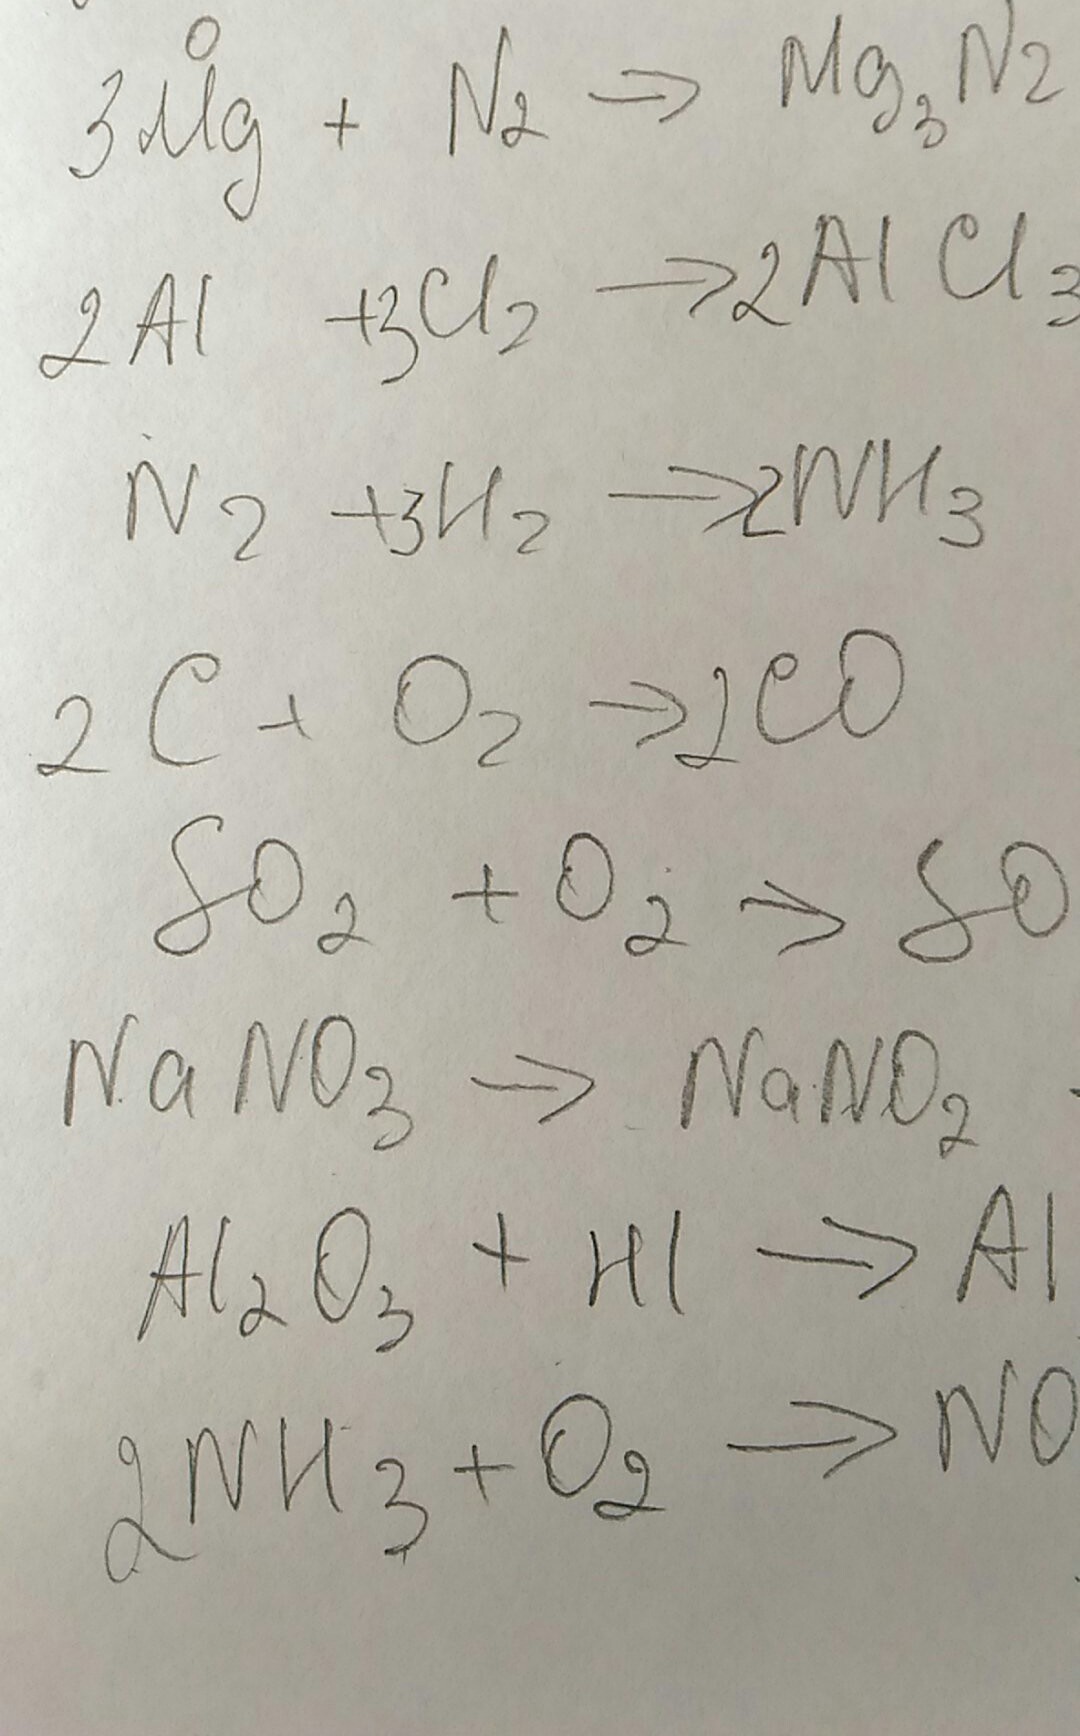 3Mg + N2 → Mg3N2
2Al +3Cl2 → 2AlCl3
N2 +3H2 → 2NH3
2C + O2 → 2CO
SO2 + O2 → SO
NaNO3 → NaNO2
Al2O3 + HI → Al
2NH3 + O2 → NO